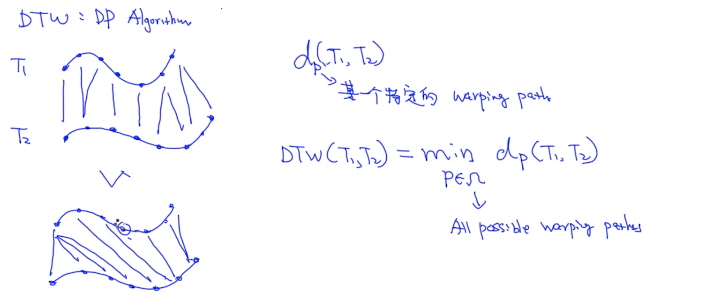 DTW: DP Algorithm
T₁
T₂
dₚ(T₁, T₂)
某一个特定的 warping path
DTW(T₁,T₂) = min dₚ(T₁, T₂)
P∈Ω
All possible warping paths